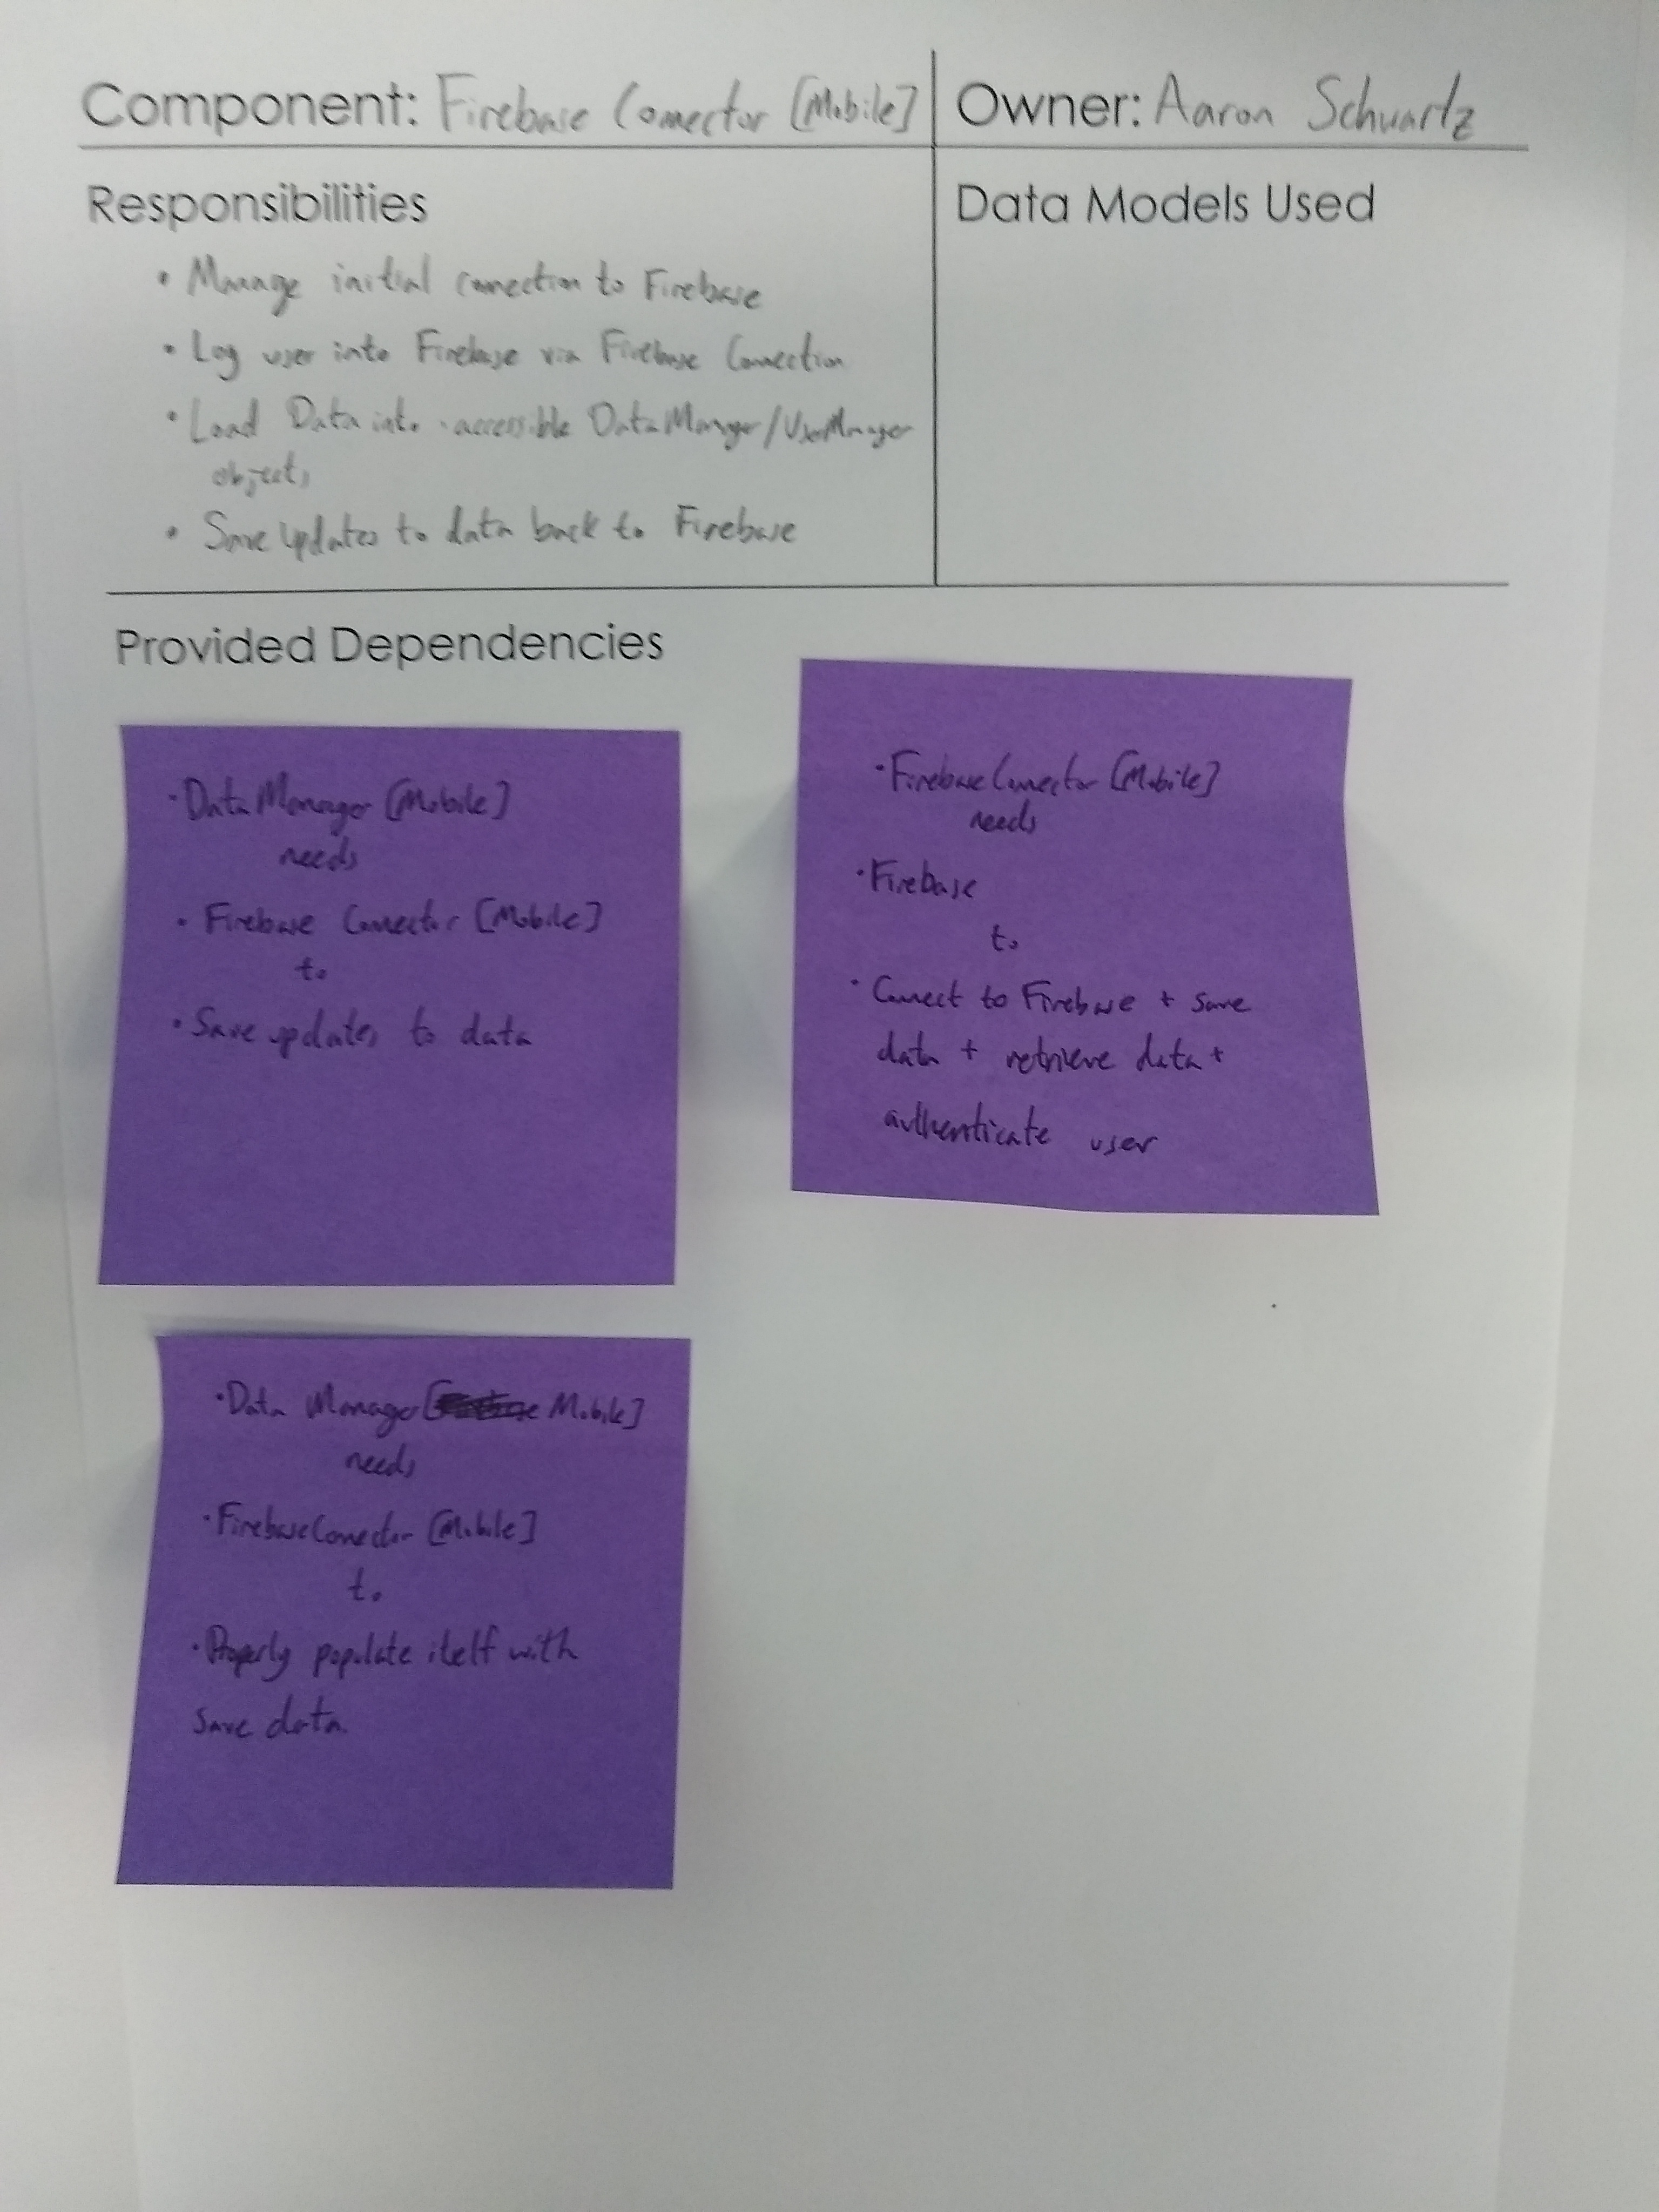 Component: Firebase Connector [Mobile]
Owner: Aaron Schwartz
Responsibilities
• Manage initial connection to Firebase
• Log user into Firebase via Firebase Connection
• Load Data into accessible DataManager/UserManager
objects
• Save updates to data back to Firebase
Data Models Used
Provided Dependencies
• DataManager [Mobile]
needs
• Firebase Connector [Mobile]
to
• Save updates to data
• FirebaseConnector [Mobile]
needs
• Firebase
to
• Connect to Firebase + save
data + retrieve data +
authenticate user
• Data Manager [Mobile]
needs
• FirebaseConnector [Mobile]
to
• Properly populate itself with
save data.